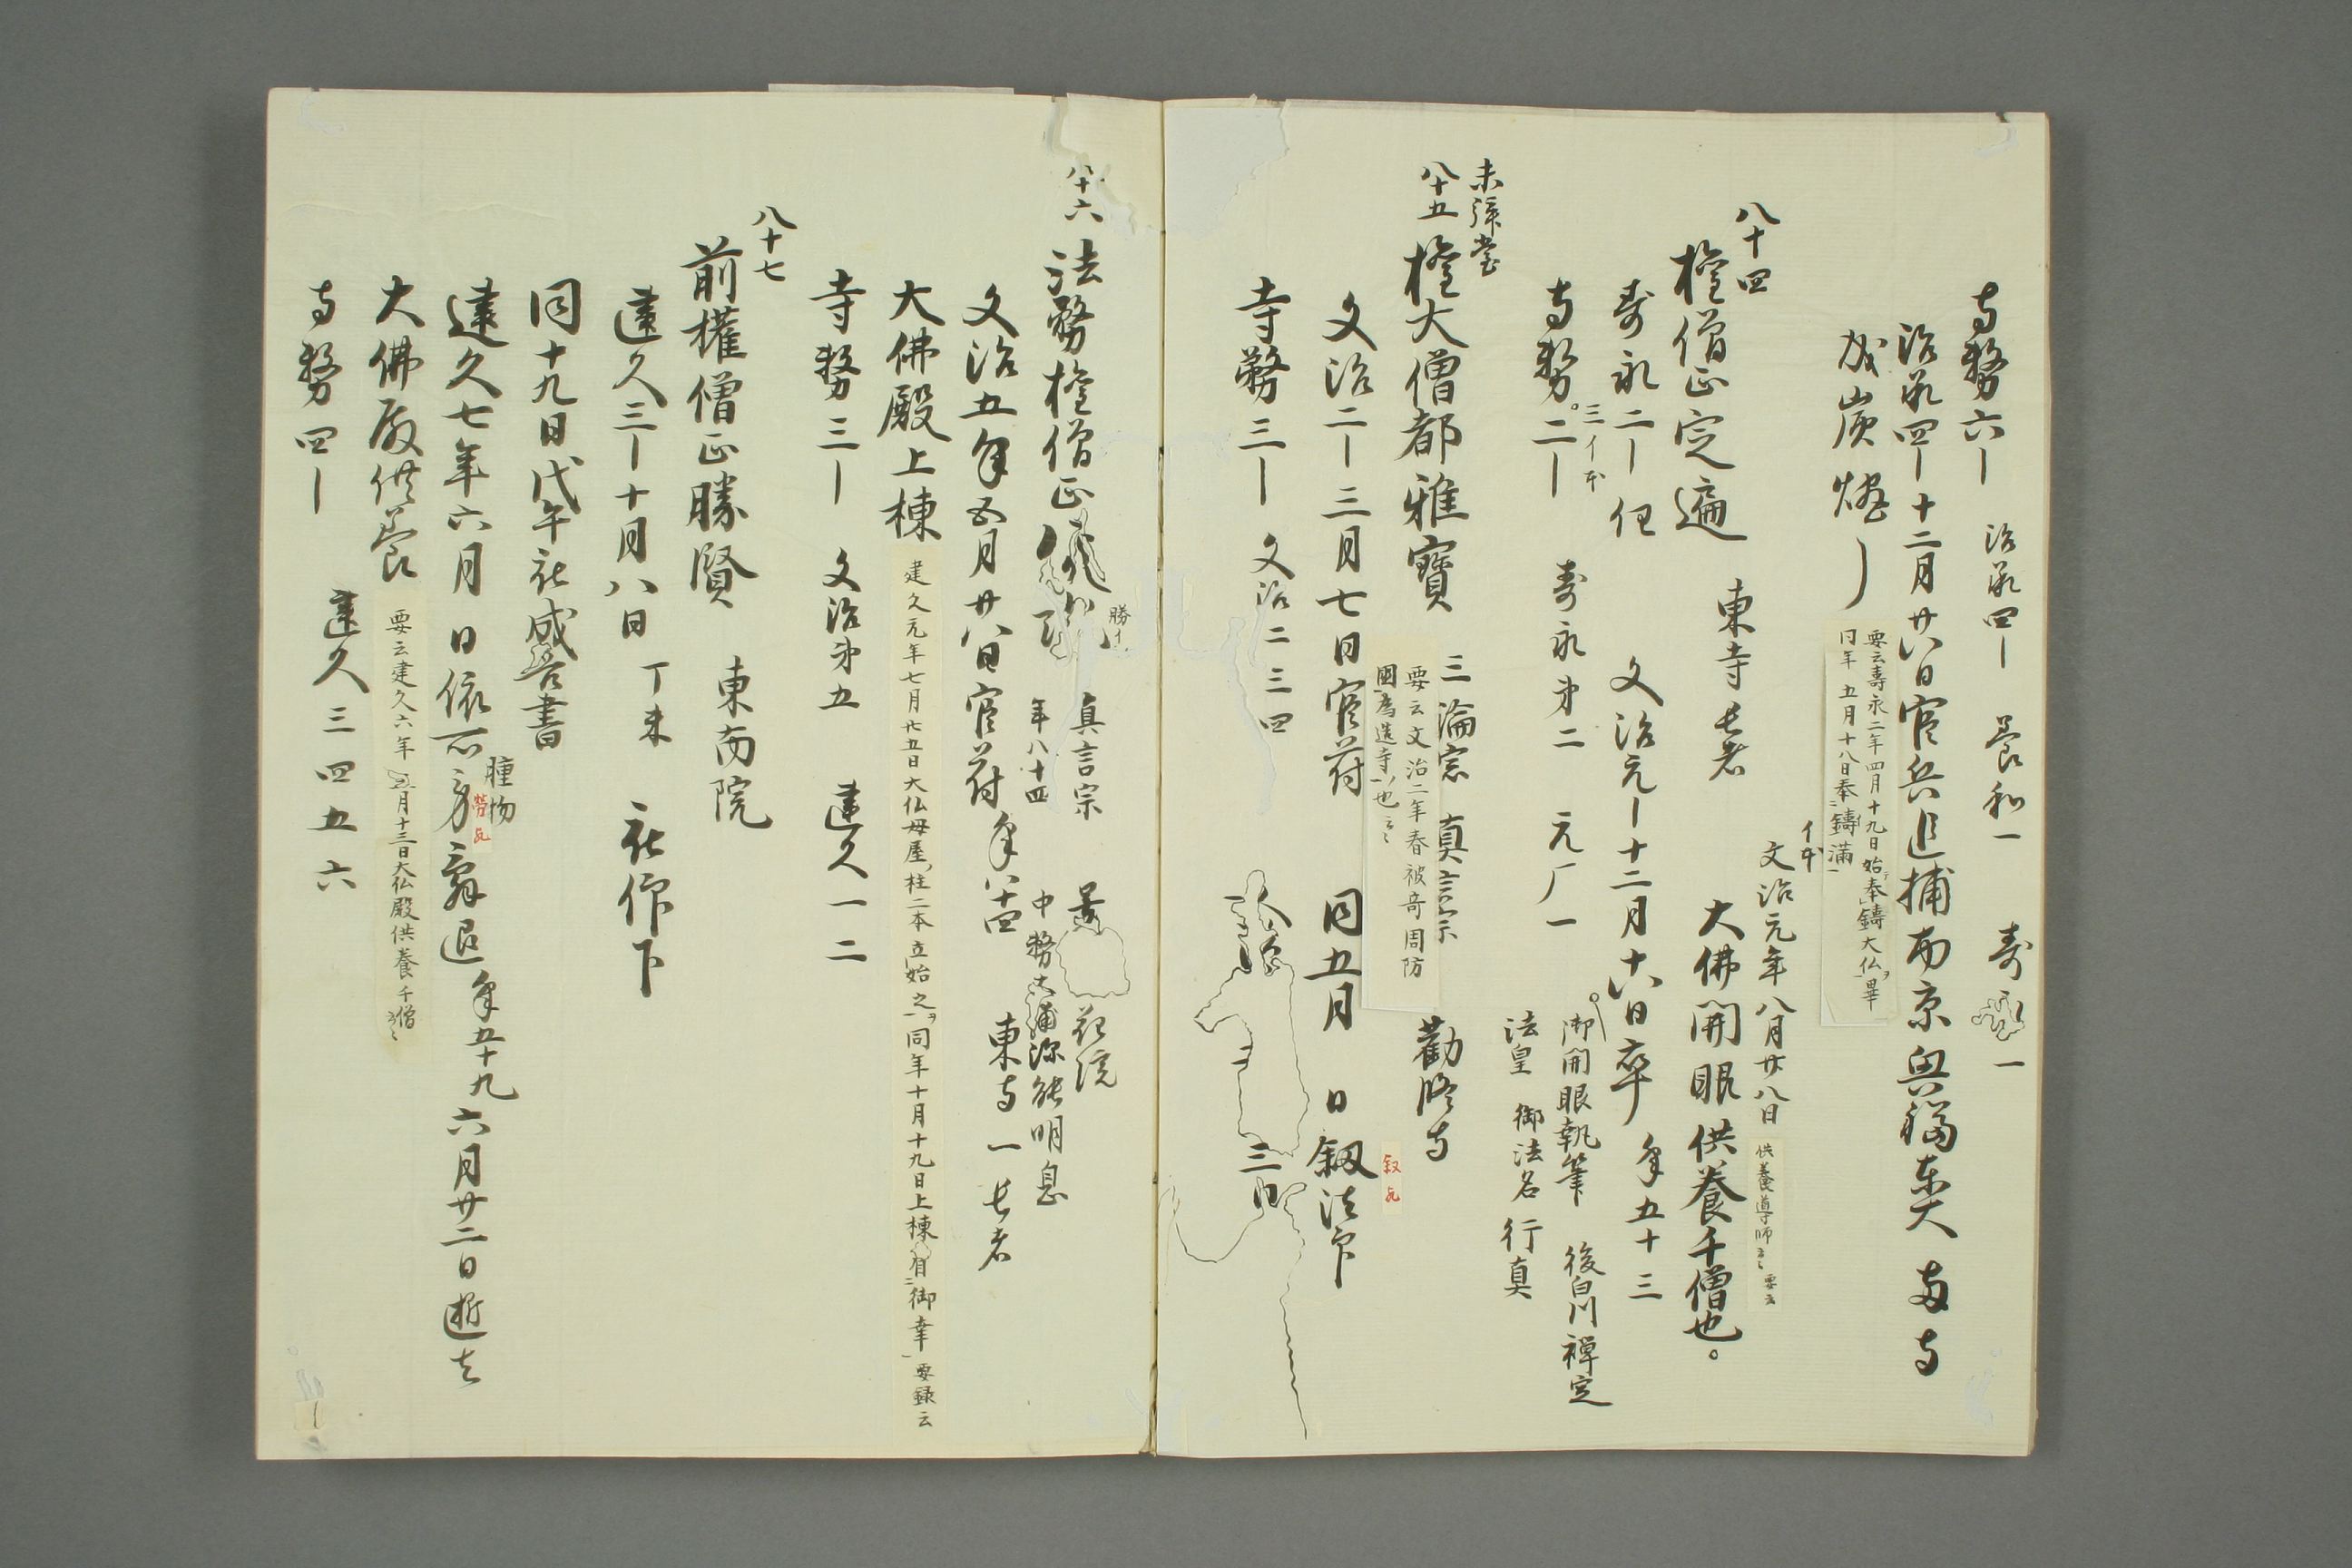 寺務六― 治承四― 養和一 寿永一
治承四―十二月廿八日官兵追捕南京興福東大両寺
成炭燼
要云壽永二年四月十九日始奉鑄大仏畢
同年 五月十八日奉鑄満
八十四
権僧正定遍 東寺長者
イ本
文治元年八月廿八日 供養導師云々 要云
大佛開眼供養千僧也。
寿永二― 任 文治元―十二月十六日卒 年五十三
三イ本
寺務二― 寿永第二 元厂一
御開眼執筆 後白川禅定
法皇 御法名 行真
未拝堂
八十五 権大僧都雅寶 三論宗 真言宗 勸修寺
要云文治二年春被寄周防
國為造寺也云々
文治二―三月七日官符 同五月 日釼法印
叙歟
寺務三― 文治二三四
八十六 法務権僧正俊證
勝イ
真言宗
年八十四
花院
中務大輔源能明息
文治五年五月廿八日官符 年八十四 東寺一長者
大佛殿上棟
建久元年七月廿五日大仏母屋柱二本立始之同年十月十九日上棟有御幸 要録云
寺務三― 文治第五 建久一二
八十七
前權僧正勝賢 東南院
建久三―十月八日 丁未 社作下
同十九日戊午社成吾書
建久七年六月 日依所労辞退 年五十九 六月廿二日逝去
腫物
労歟
大佛殿供養
要云建久六年三月十三日大仏殿供養千僧云々
寺務四― 建久三四五六